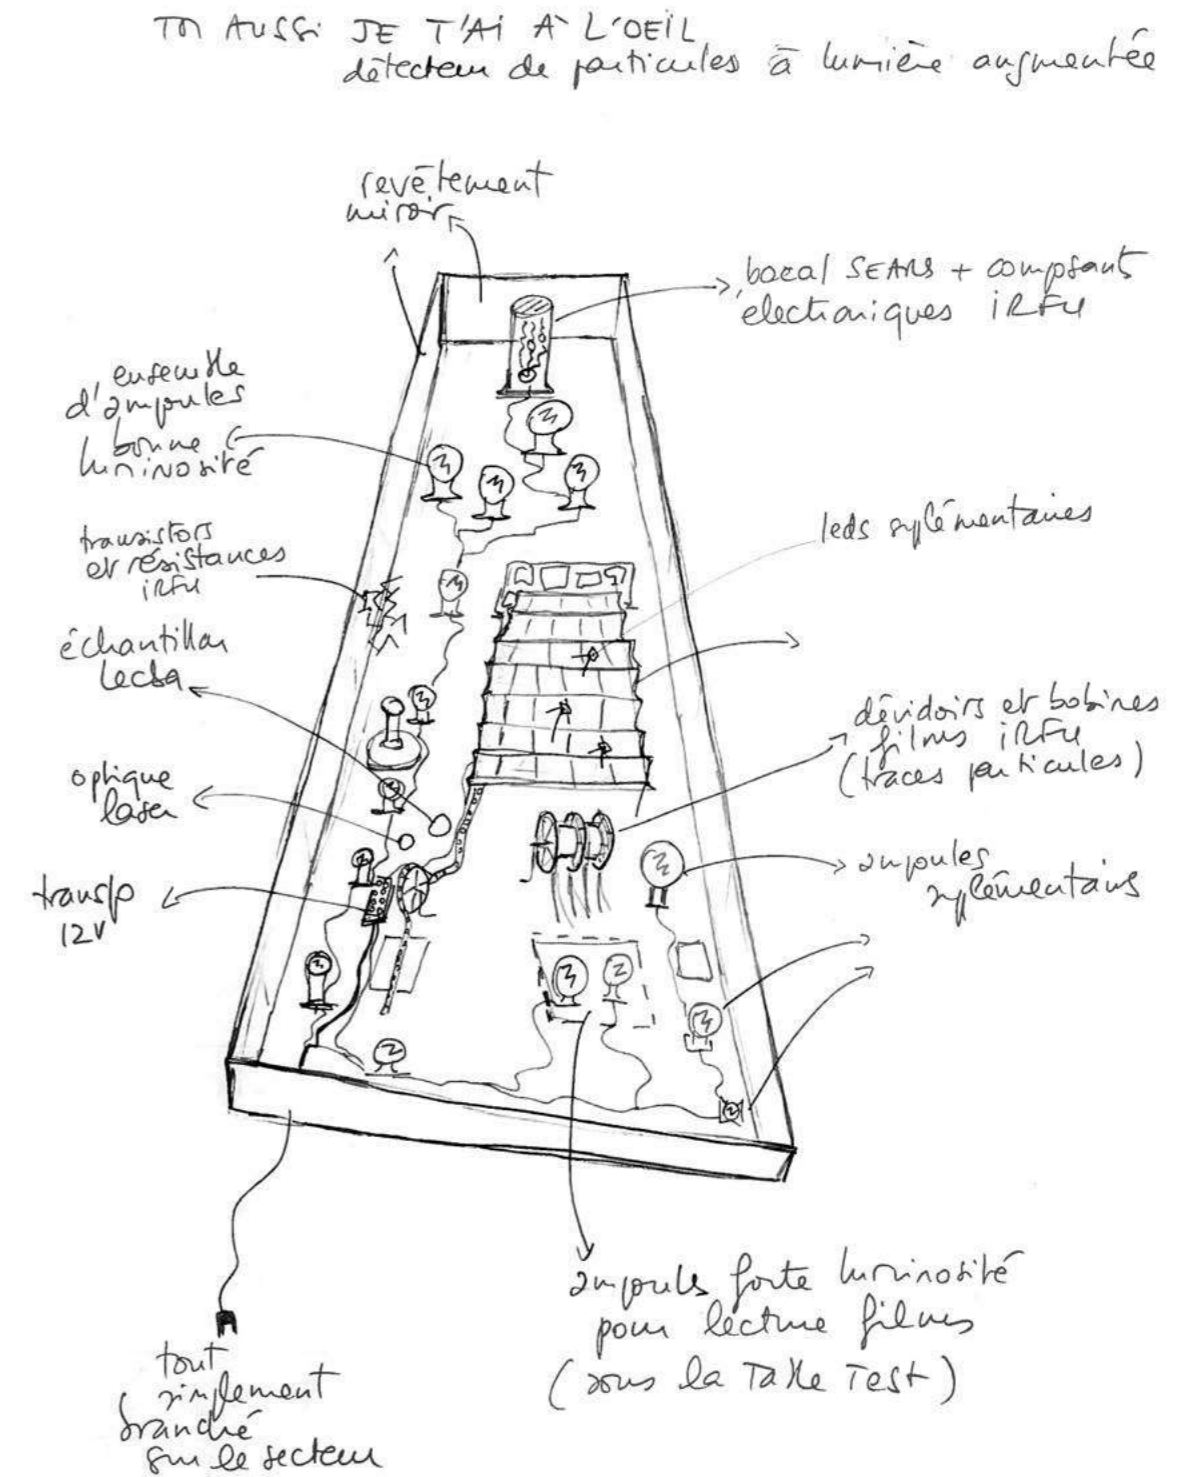 TOI AUSSI JE T'AI À L'OEIL
détecteur de particules à lumière augmentée
revêtement
miroir
bocal SEARS + composants
électroniques IRFU
ensemble
d'ampoules
bonne
luminosité
transistors
et résistances
IRFU
leds suplémentaires
échantillon
Lecba
dévidoirs et bobines
films IRFU
(traces particules)
optique
laser
ampoules
suplémentaires
transfo
12V
ampoules forte luminosité
pour lecture films
(sous la Table Test)
tout
simplement
branché
sur le secteur